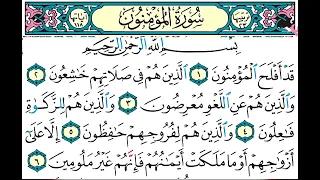 سُورَةُ المُؤْمِنُونَ
بِسْمِ اللَّهِ الرَّحْمَٰنِ الرَّحِيمِ
قَدْ أَفْلَحَ الْمُؤْمِنُونَ ١ الَّذِينَ هُمْ فِي صَلَاتِهِمْ خَاشِعُونَ ٢
وَالَّذِينَ هُمْ عَنِ اللَّغْوِ مُعْرِضُونَ ٣ وَالَّذِينَ هُمْ لِلزَّكَوٰةِ
فَاعِلُونَ ٤ وَالَّذِينَ هُمْ لِفُرُوجِهِمْ حَافِظُونَ ٥ إِلَّا عَلَىٰ
أَزْوَاجِهِمْ أَوْ مَا مَلَكَتْ أَيْمَانُهُمْ فَإِنَّهُمْ غَيْرُ مَلُومِينَ ٦